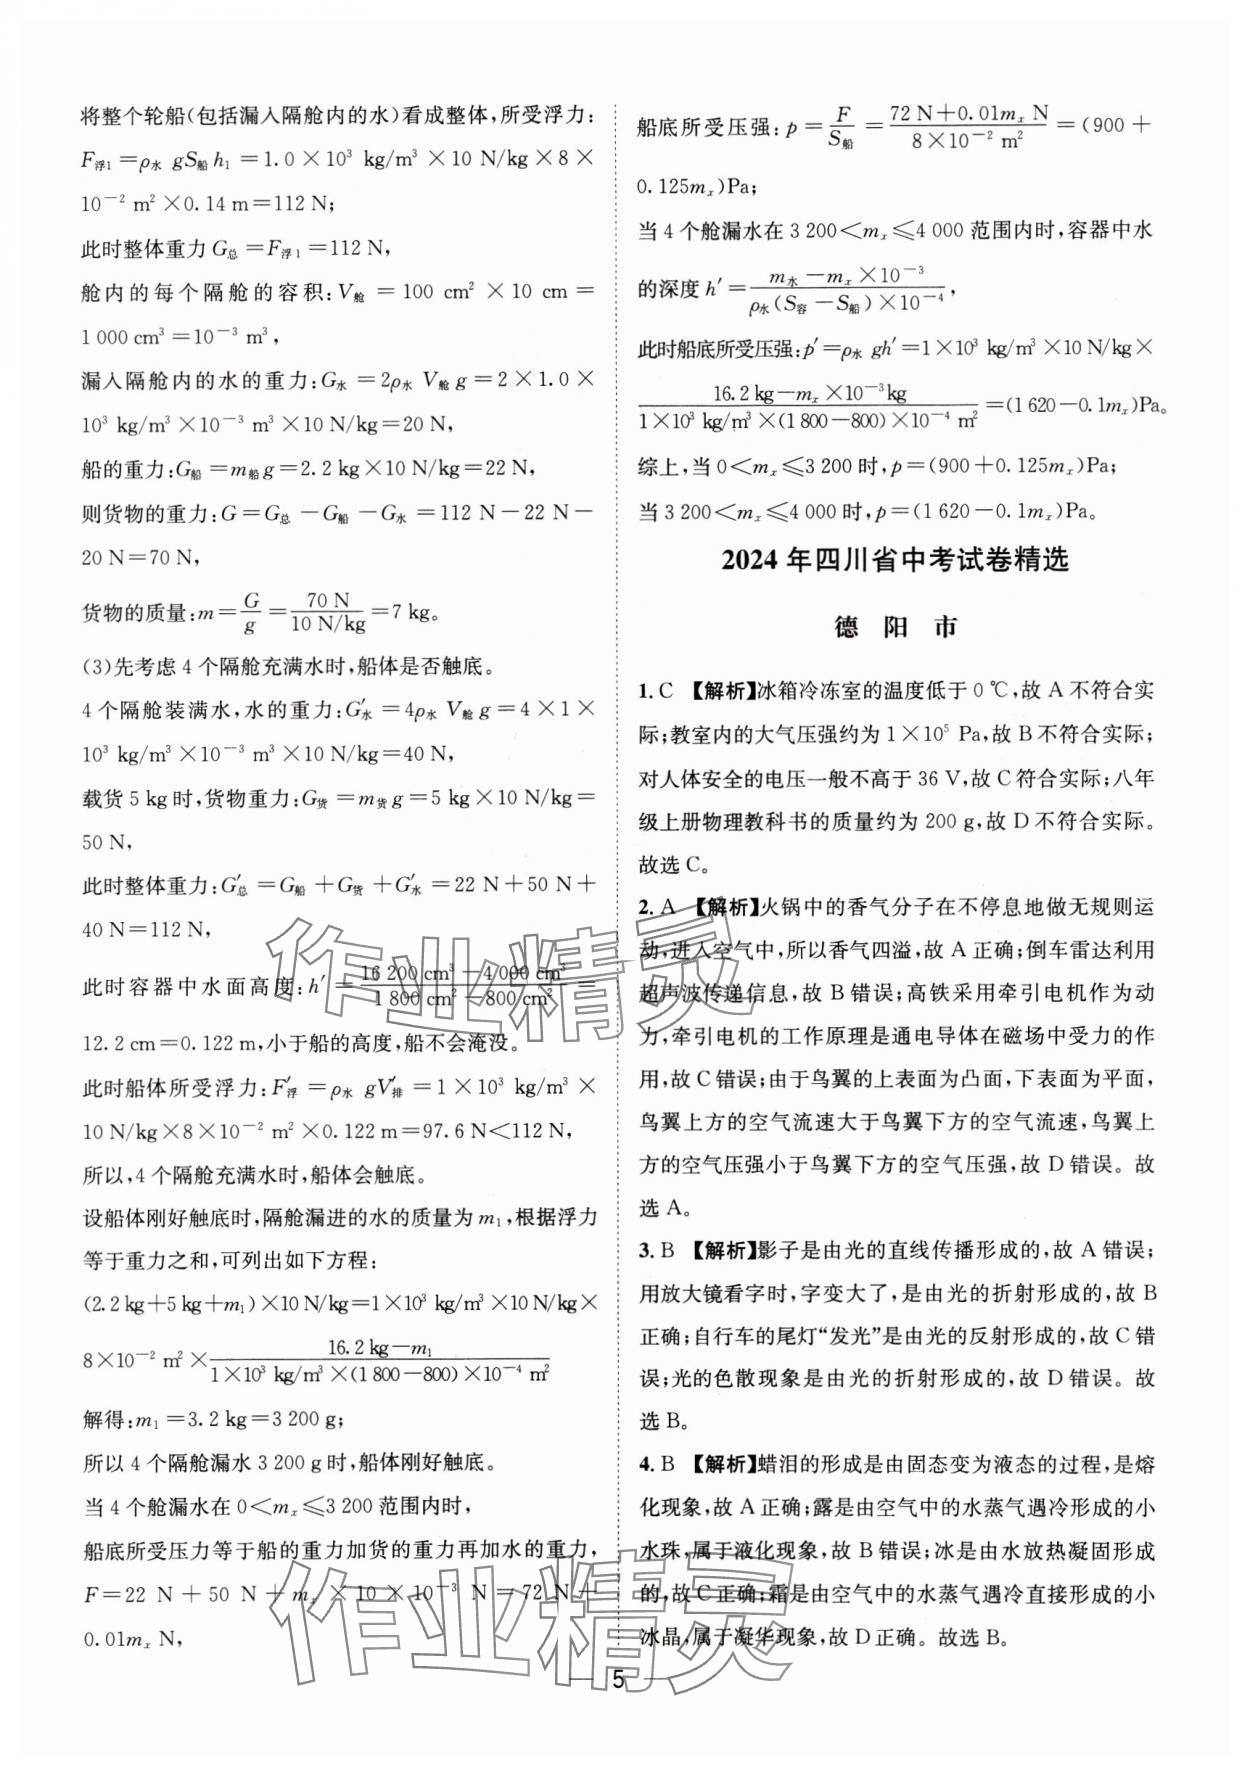 将整个轮船(包括漏入隔舱内的水)看成整体,所受浮力:
F浮1=ρ水 gS船 h₁=1.0×10³ kg/m³×10 N/kg×8×
10⁻² m²×0.14 m=112 N;
此时整体重力 G总=F浮1=112 N,
舱内的每个隔舱的容积:V舱=100 cm²×10 cm=
1 000 cm³=10⁻³ m³,
漏入隔舱内的水的重力:G水=2ρ水 V舱 g=2×1.0×
10³ kg/m³×10⁻³ m³×10 N/kg=20 N,
船的重力:G船=m船 g=2.2 kg×10 N/kg=22 N,
则货物的重力:G=G总-G船-G水=112 N-22 N-
20 N=70 N,
货物的质量:m=G/g=70 N/10 N/kg=7 kg。
(3)先考虑 4 个隔舱充满水时,船体是否触底。
4 个隔舱装满水,水的重力:G′水=4ρ水 V舱 g=4×1×
10³ kg/m³×10⁻³ m³×10 N/kg=40 N,
载货 5 kg 时,货物重力:G货=m货 g=5 kg×10 N/kg=
50 N,
此时整体重力:G′总=G船+G货+G′水=22 N+50 N+
40 N=112 N,
此时容器中水面高度:h′=16 200 cm³-4 000 cm³/1 800 cm²-800 cm²=
12.2 cm=0.122 m,小于船的高度,船不会淹没。
此时船体所受浮力:F′浮=ρ水 gV′排=1×10³ kg/m³×
10 N/kg×8×10⁻² m²×0.122 m=97.6 N<112 N,
所以,4 个隔舱充满水时,船体会触底。
设船体刚好触底时,隔舱漏进的水的质量为 m₁,根据浮力
等于重力之和,可列出如下方程:
(2.2 kg+5 kg+m₁)×10 N/kg=1×10³ kg/m³×10 N/kg×
8×10⁻² m²×16.2 kg-m₁/1×10³ kg/m³×(1 800-800)×10⁻⁴ m²
解得:m₁=3.2 kg=3 200 g;
所以 4 个隔舱漏水 3 200 g 时,船体刚好触底。
当 4 个舱漏水在 0<mₓ≤3 200 范围内时,
船底所受压力等于船的重力加货的重力再加水的重力,
F=22 N+50 N+mₓ×10×10⁻³ N=72 N+
0.01mₓ N,
船底所受压强:p=F/S船=72 N+0.01mₓ N/8×10⁻² m²=(900+
0.125mₓ)Pa;
当 4 个舱漏水在 3 200<mₓ≤4 000 范围内时,容器中水
的深度 h′=m水-mₓ×10⁻³/ρ水(S容-S船)×10⁻⁴,
此时船底所受压强:p′=ρ水 gh′=1×10³ kg/m³×10 N/kg×
16.2 kg-mₓ×10⁻³kg/1×10³ kg/m³×(1 800-800)×10⁻⁴ m²=(1 620-0.1mₓ)Pa。
综上,当 0<mₓ≤3 200 时,p=(900+0.125mₓ)Pa;
当 3 200<mₓ≤4 000 时,p=(1 620-0.1mₓ)Pa。
2024 年四川省中考试卷精选
德 阳 市
1. C 【解析】冰箱冷冻室的温度低于 0 ℃,故 A 不符合实
际;教室内的大气压强约为 1×10⁵ Pa,故 B 不符合实际;
对人体安全的电压一般不高于 36 V,故 C 符合实际;八年
级上册物理教科书的质量约为 200 g,故 D 不符合实际。
故选 C。
2. A 【解析】火锅中的香气分子在不停息地做无规则运
动,进入空气中,所以香气四溢,故 A 正确;倒车雷达利用
超声波传递信息,故 B 错误;高铁采用牵引电机作为动
力,牵引电机的工作原理是通电导体在磁场中受力的作
用,故 C 错误;由于鸟翼的上表面为凸面,下表面为平面,
鸟翼上方的空气流速大于鸟翼下方的空气流速,鸟翼上
方的空气压强小于鸟翼下方的空气压强,故 D 错误。故
选 A。
3. B 【解析】影子是由光的直线传播形成的,故 A 错误;
用放大镜看字时,字变大了,是由光的折射形成的,故 B
正确;自行车的尾灯“发光”是由光的反射形成的,故 C 错
误;光的色散现象是由光的折射形成的,故 D 错误。故
选 B。
4. B 【解析】蜡泪的形成是由固态变为液态的过程,是熔
化现象,故 A 正确;露是由空气中的水蒸气遇冷形成的小
水珠,属于液化现象,故 B 错误;冰是由水放热凝固形成
的,故 C 正确;霜是由空气中的水蒸气遇冷直接形成的小
冰晶,属于凝华现象,故 D 正确。故选 B。
作业精灵
作业精灵
5